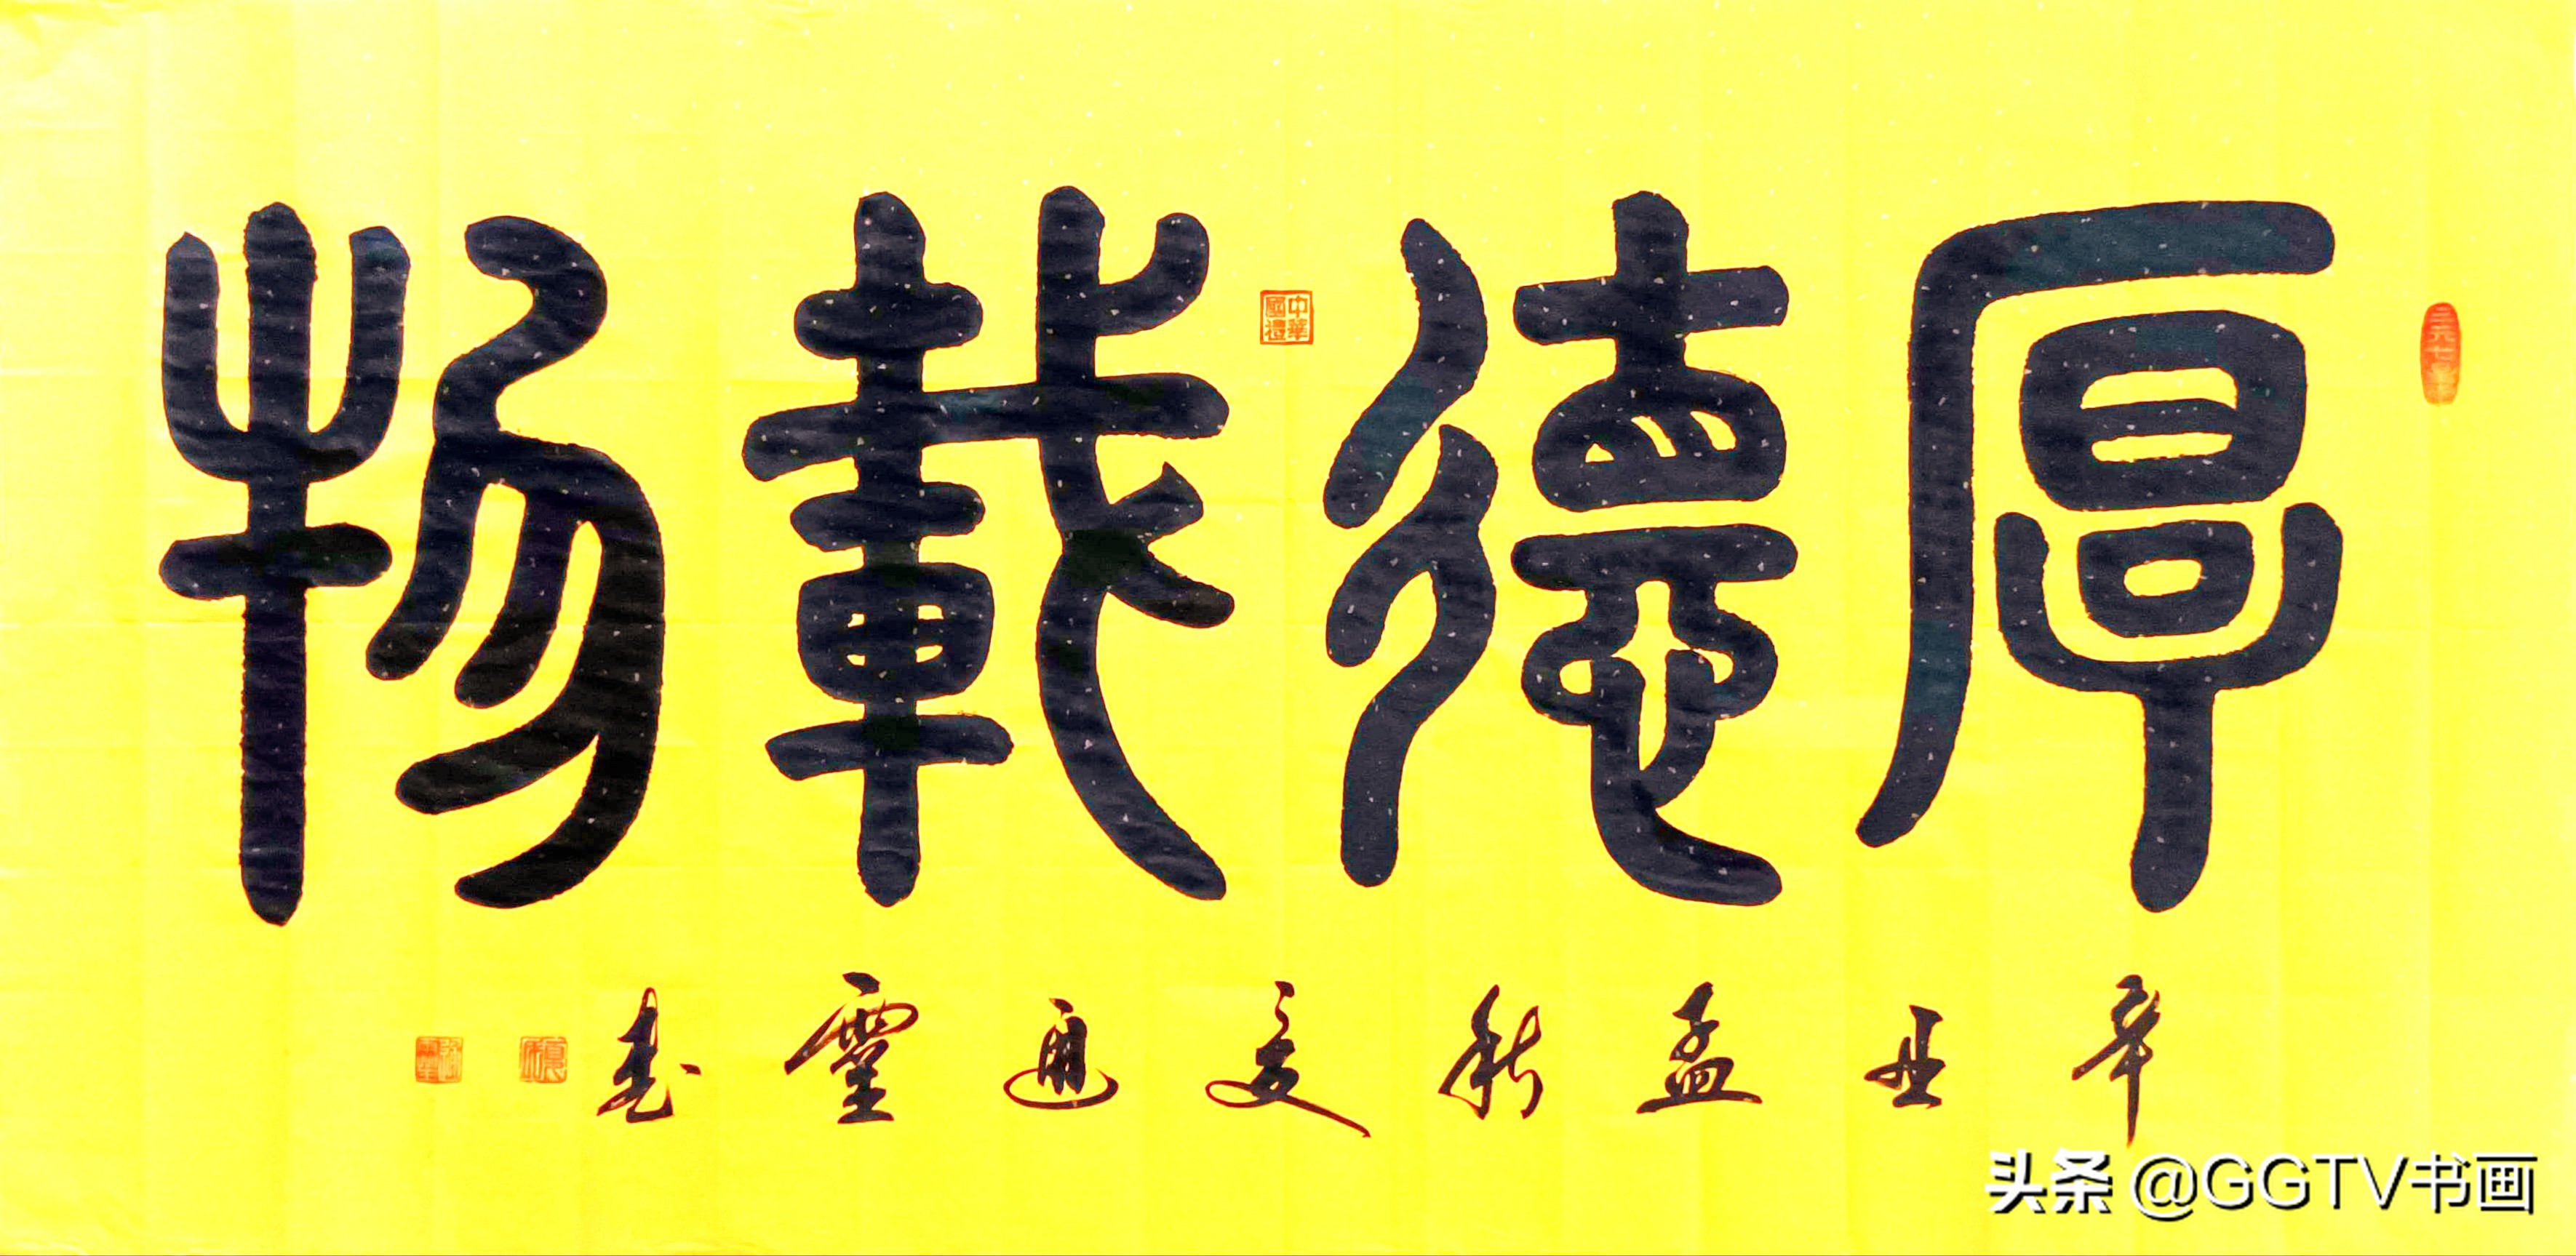 厚德載物
辛丑孟秋夏通靈書
中華國禮
头条 @GGTV书画